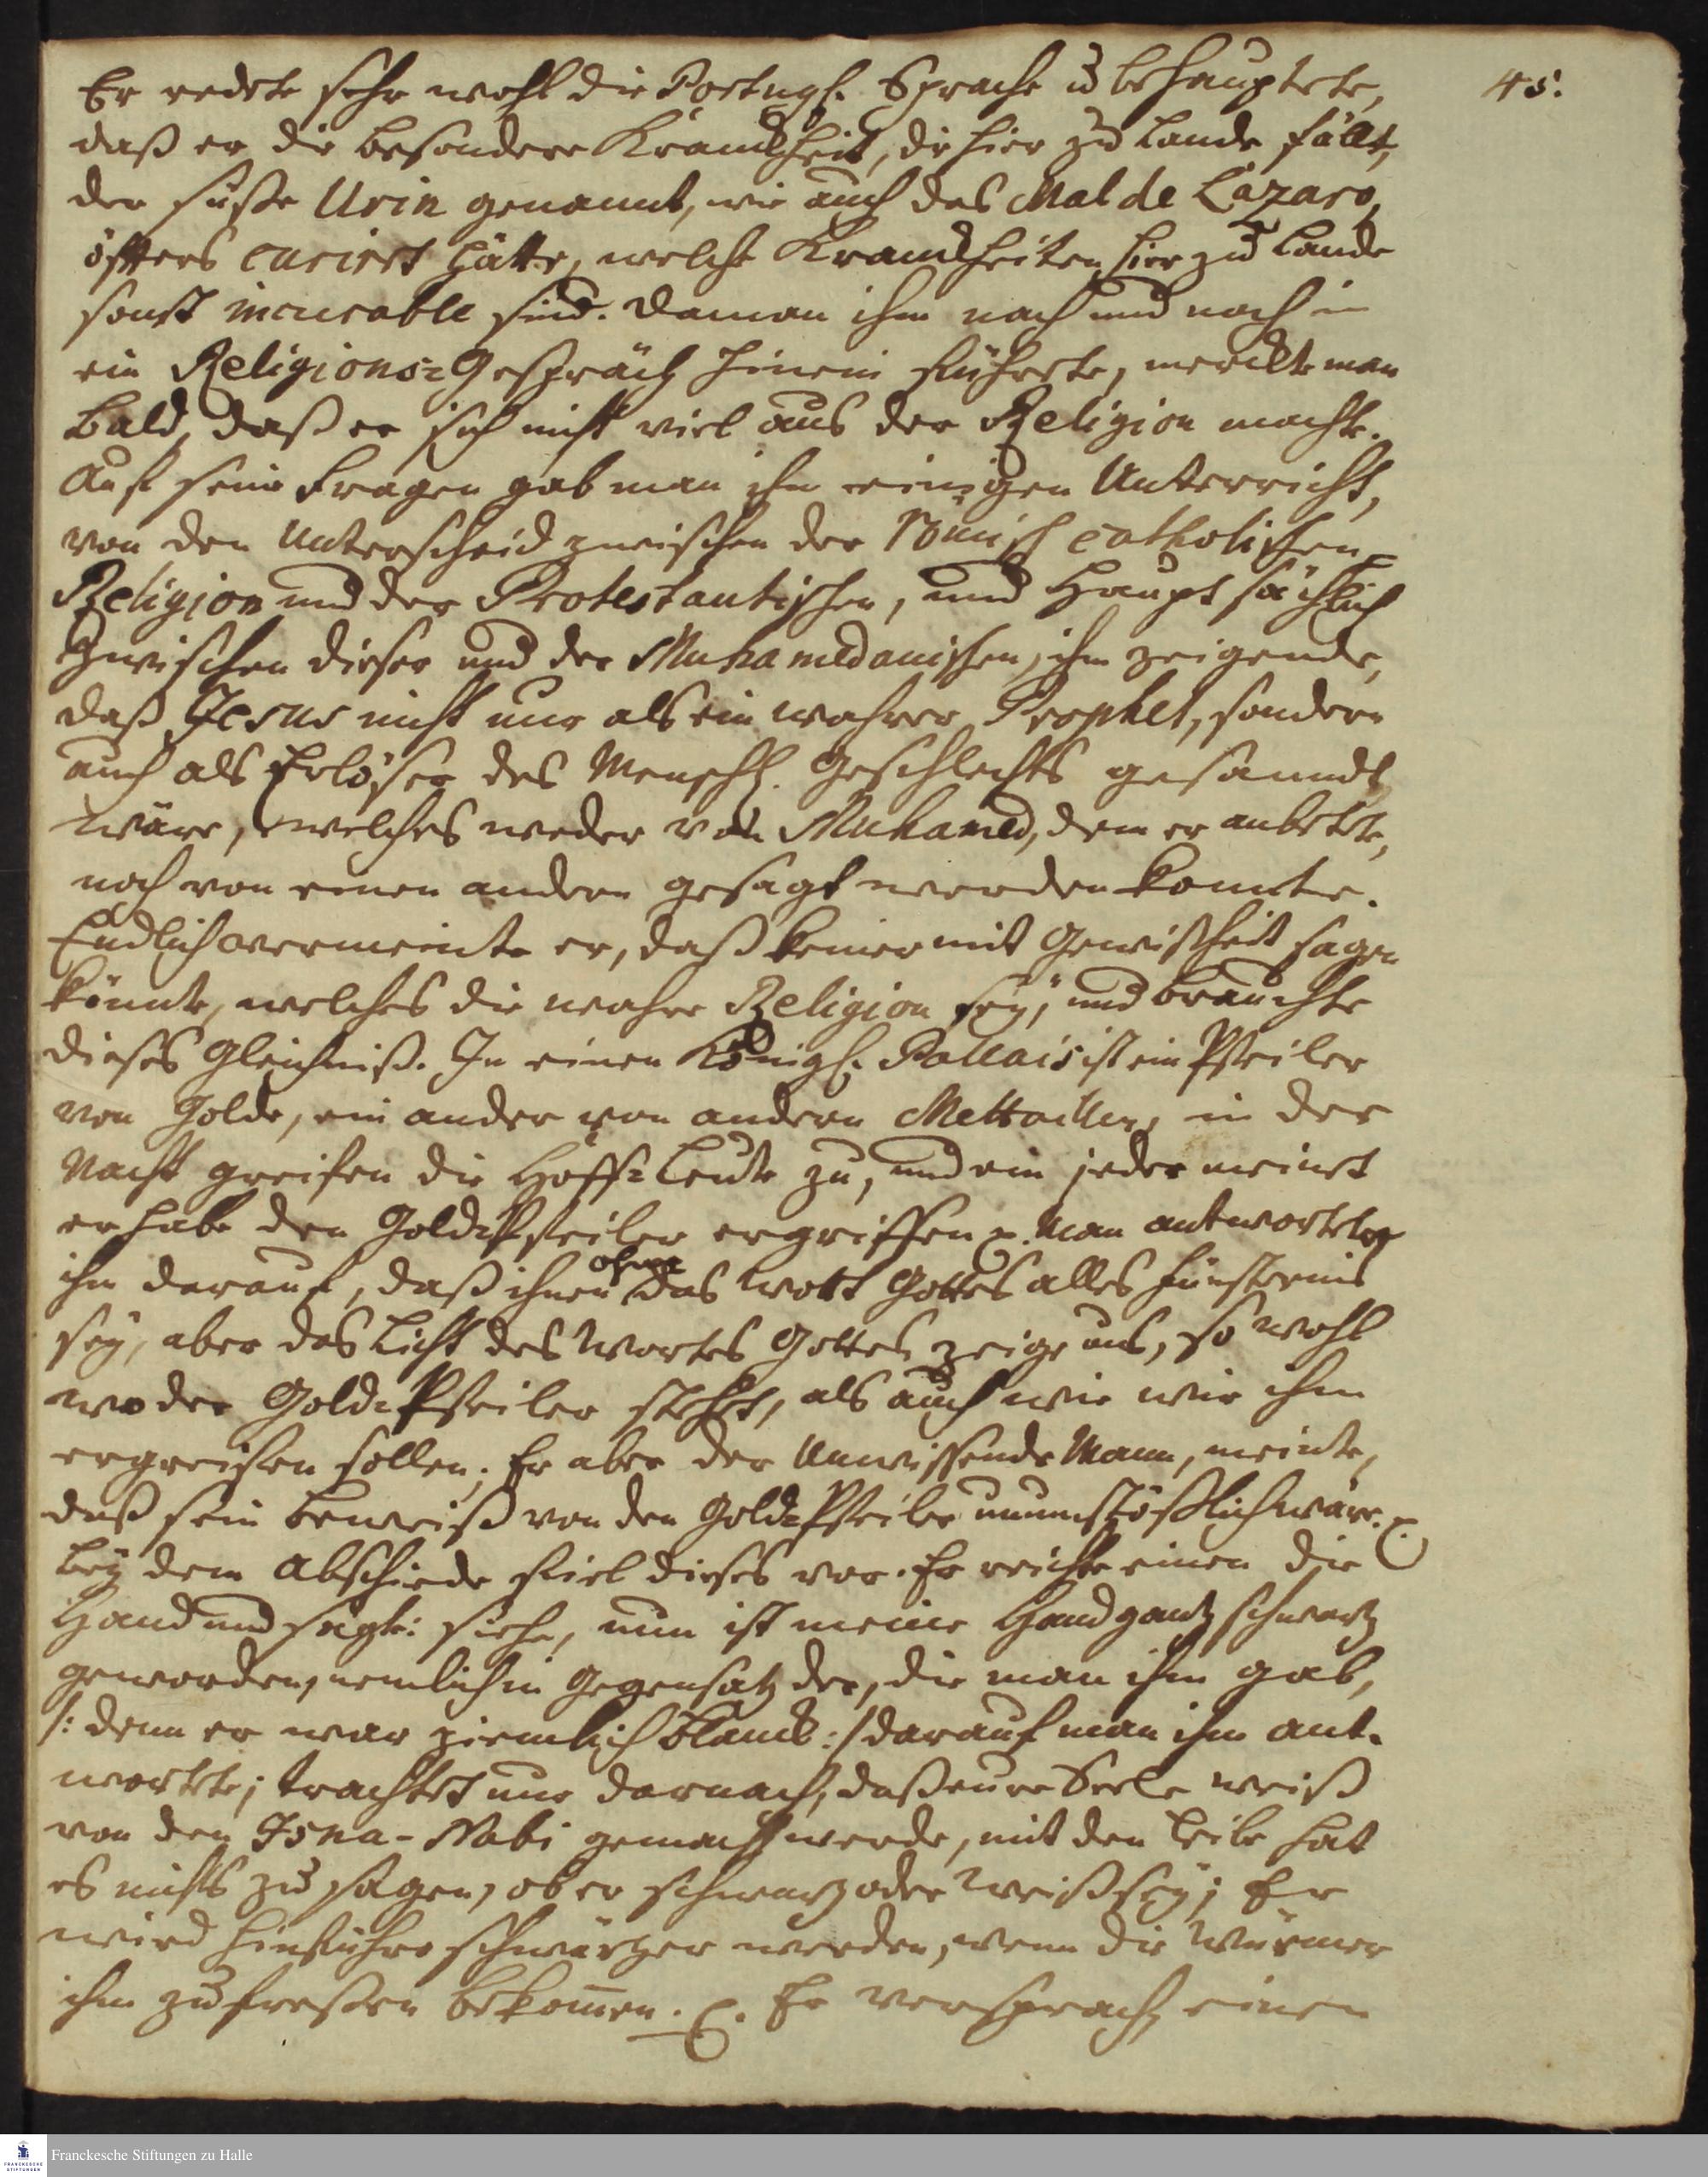 45.
Er redete sehr wohl die Portugs. Sprache u behauptete,
daß er die besondere Kranckheit, die hier zu Lande fällt,
der süße Urin genannt, wie auch das Mal de Lazaro,
öffters curirt hätte, welche Kranckheiten hier zu Lande
sonst incurable sind. Da man ihm nach und nach in
ein Religions=Gespräch hinein führete, merckte man
bald, daß er sich nicht viel aus der Religion machte.
Auf seine Fragen gab man ihm einigen Unterricht,
von den Unterscheid zwischen der Römisch catholischen
Religion und der Protestantischen, und Hauptsächlich
Zwischen dieser und der Muhamedanischen, ihm zeigende,
daß Jesus nicht nur als ein wahrer Prophet, sondern
auch als Erlöser des Menschl. Geschlechts gesanndt
wäre, welches weder von Muhamed, dem er anbetete,
noch von einen andern gesagt werden konnte.
Endlich vermeinte er, daß keiner mit Gewißheit sagen
könnte, welches die wahre Religion sey, und brauchte
dieses Gleichniß. In einen Königl. Pallais ist ein Pfeiler
von Golde, ein ander von andern Mettallen, in der
Nacht greifen die Hoff=Leute zu, und ein jeder meinet
er habe den Gold=Pfeiler ergriffen p. Man antwortete
ihm darauf, daß ihnen ohne das Wort Gottes alles Finsternis
sey, aber das Licht des Wortes Gottes zeige uns, so wohl
wo der Gold=Pfeiler stehet, als auch wie wir ihm
ergreifen sollen. Er aber der Unwissende Mann, meinte,
daß sein Beweiß von den Gold=Pfeiler unumstößlich wäre. p.
Bey dem Abschiede fiel dieses vor. Er reichte einen die
Hand und sagte: siehe, nun ist meine Hand gantz schwartz
geworden, nemlich in Gegensatz der, die man ihm gab,
/: denn er war ziemlich blanck :/ darauf man ihm ant-
wortete; trachtet nur darnach, daß eure Seele weiß
von den Isna-Nabi gemacht werde, mit den Leibe hat
es nichts zu sagen, ob er schwartz oder weiß sey; Er
wird hinführo schwärzer werden, wenn die Würmer
ihm zu freßen bekommen. p. Er versprach, einen